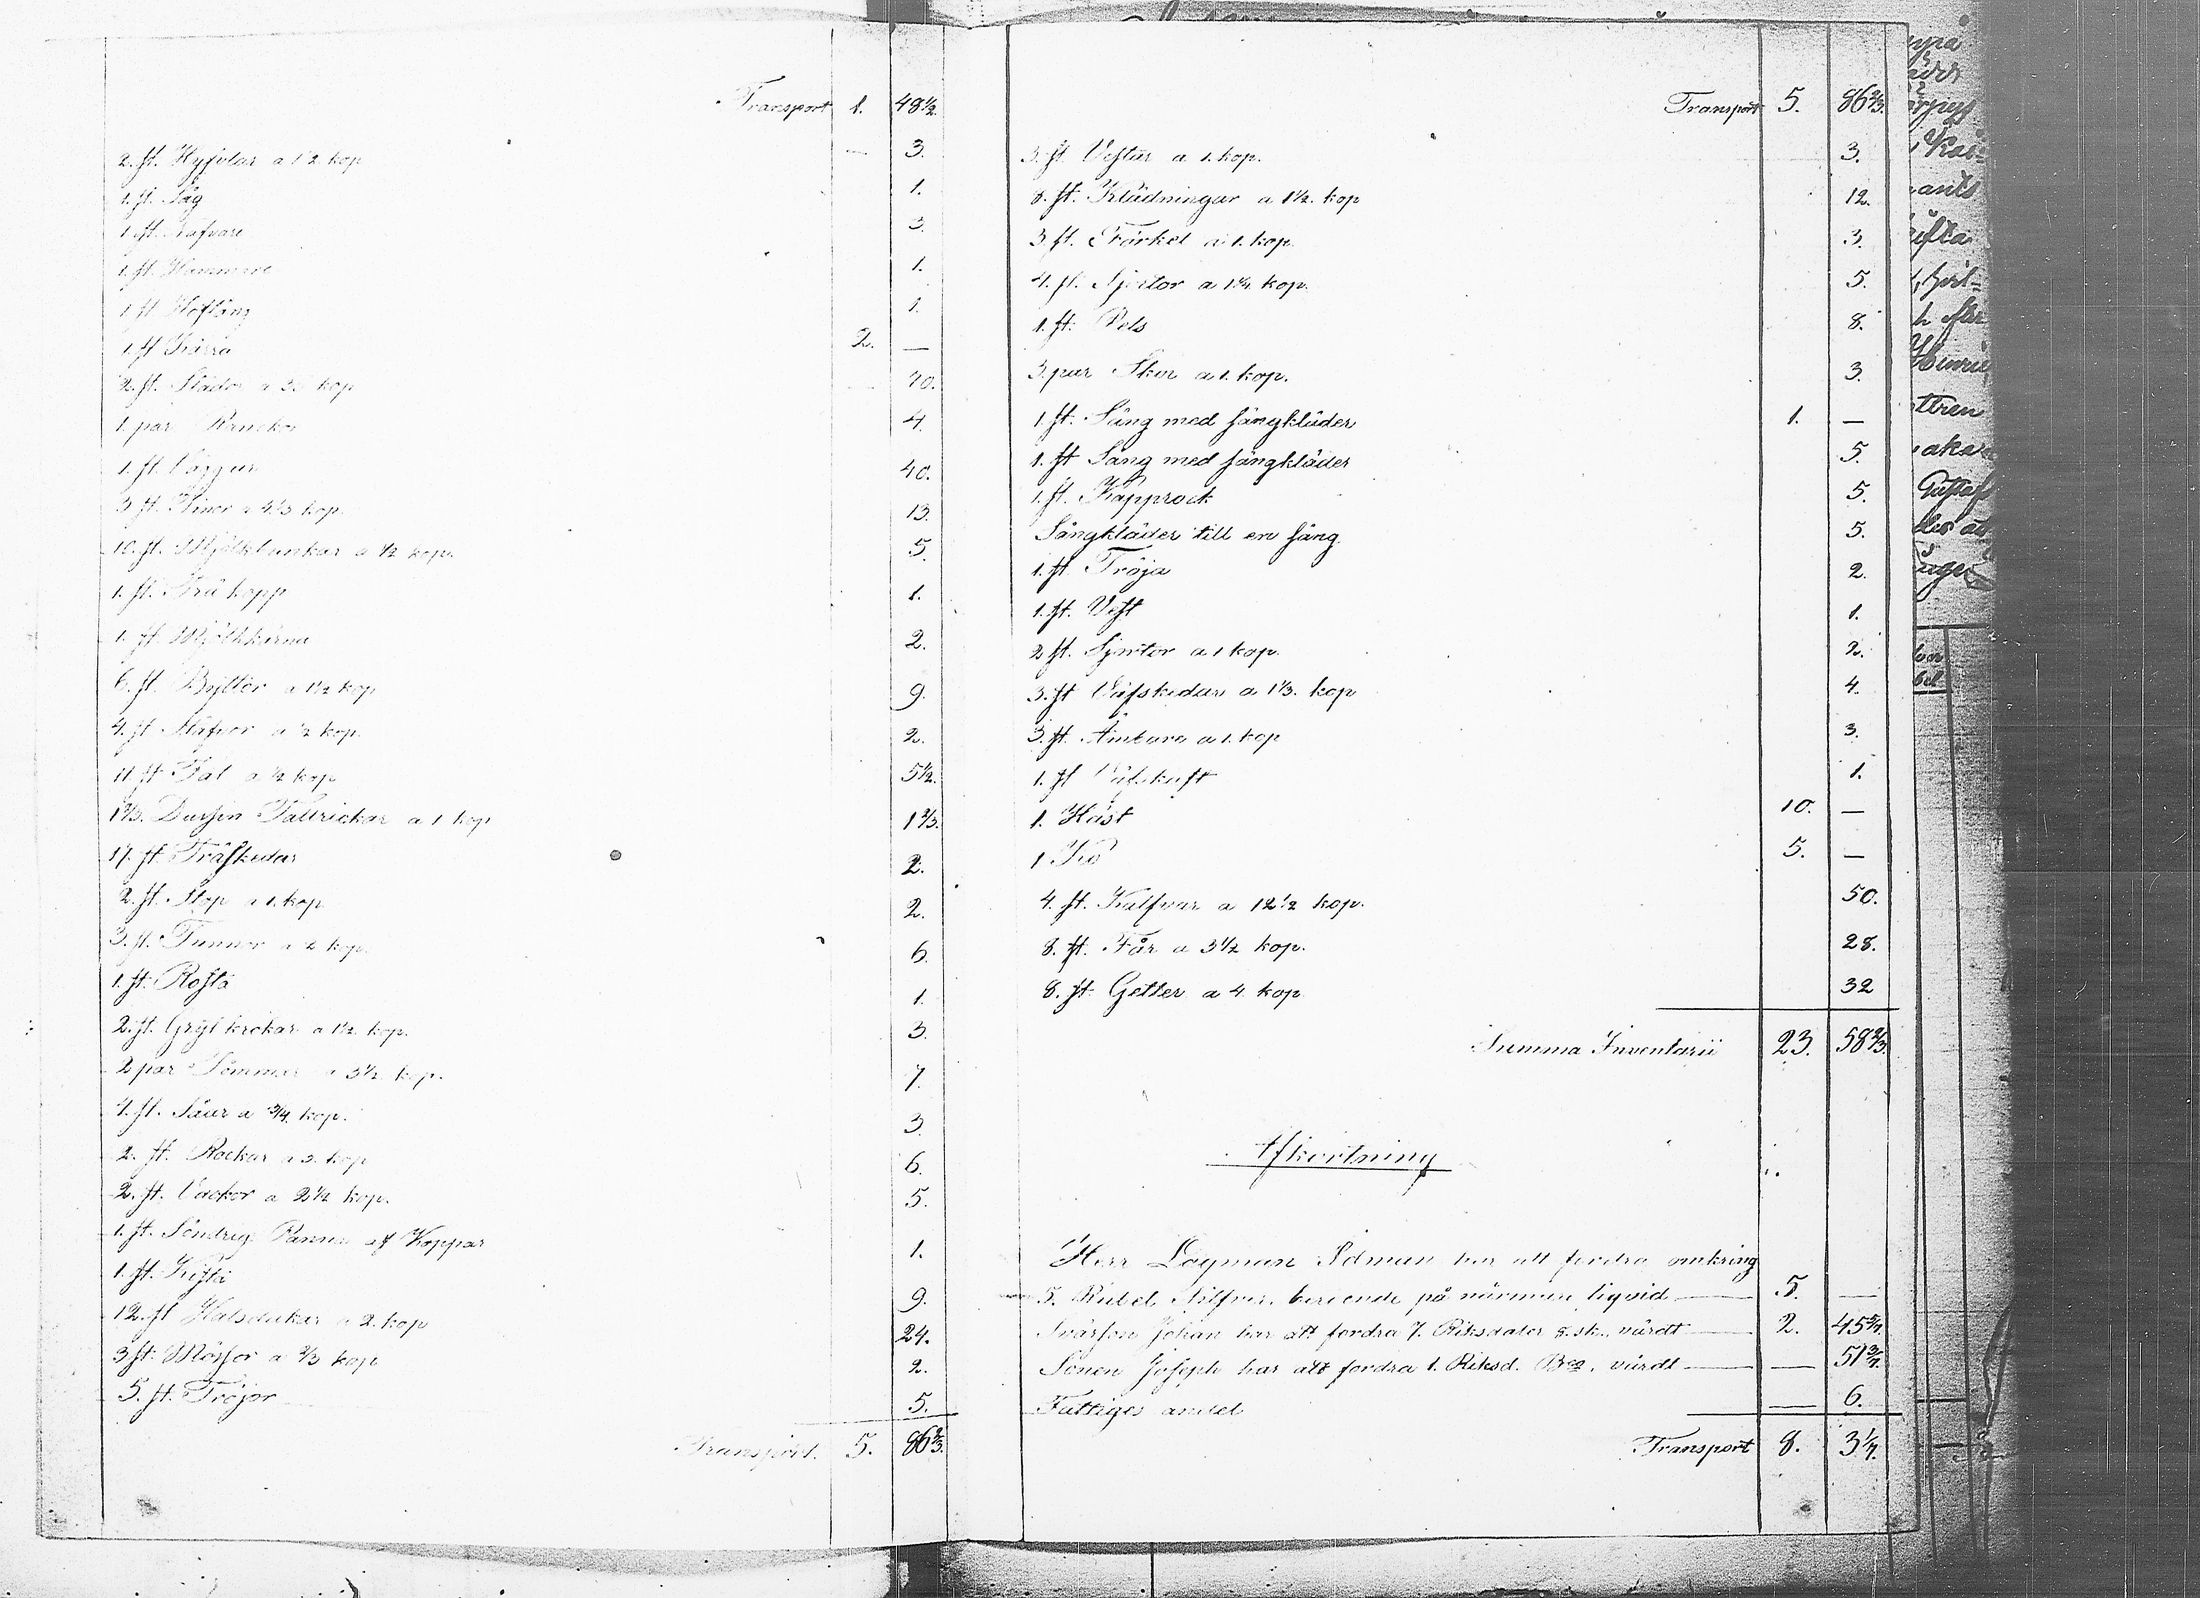 Transport 1. 48 1/2.
2. st. Hyfvlar a 1 1/2 kop — 3.
1. st. Såg 1.
1. st. Nafvare 3.
1. st. Hammare 1.
1. st. Hoftång 1.
1. st Kärra 2. —
2. st. Slädor a 35 kop — 70.
1. par 4.
1. st. 40.
3 st. a 4 1/3 kop. 13.
10. st. Mjölkbunkar a 1/2 kop. 5.
1. st. kopp 1.
1. st. Mjölkkärna 2.
6. st. Byttor a 1 1/2 kop 9.
4. st. a 1/2 kop. 2.
11. st. Fat a 1/2 kop 5 1/2.
1 2/3. Dussin Talltrickar a 1 kop 1 2/3.
17. st. Träskedar 2.
2. st. Stop a 1. kop 2.
3. st. Tunnor a 2 kop. 6.
1. st. Rosta 1.
2. st. Grytkrokar a 1 1/2. kop. 3.
2 par Tömmar a 3 1/2. kop. 7.
4. st. Såar a 3/4. kop. 3.
2. st. Rockar a 3. kop 6.
2. st. Vackor a 2 1/2 kop. 5.
1. st. Söndrig Panna af Koppar 1.
1. st. Kista 9.
12. st Halsdukar a 2. kop 24.
3 st. Mössor a 2/3 kop 2.
5. st. Tröjor 5.
Transport. 5. 86 2/3.
Transport 5. 86 2/3.
3. st. Vestar a 1. kop. 3.
8. st. Klädningar a 1 1/2. kop 12.
3. st. Förkel a 1. kop. 3.
4. st. Sjortor a 1 1/4. kop. 5.
1. st. Pels 8.
3. par Skor a 1. kop. 3.
1. st. Säng med sängkläder 1. —
1. st Säng med sängkläder 5.
1. st. Kapprock 5.
Sängkläder till en säng. 5.
1. st. Tröja 2.
1. st. Vest 1.
2 st. Sjortor a 1 kop. 2.
3. st Väfskedar a 1 1/3. kop 4.
3. st. Ämbare a 1. kop 3.
1. st Väfskaft 1.
1. Häst 10. —
1 Ko 5. —
4. st. Kalfvar a 12 1/2 kop. 50.
8. st. Får a 3 1/2 kop. 28.
8. st. Getter a 4. kop 32
Summa Inventarii 23. 58 2/3.
Afkortning
Herr Lagman Idman har att fordra omkring
5. Rubel Silfver, beroende på närmare liqvid 5. —
Svärson Johan har att fordra 7. Riksdaler g. sk., värdt 2. 45 5/7.
Sonen Joseph har att fordra 1. Riksd. Bco, värdt — 51 3/7.
Fattiges andel — 6.
Transport 8. 3 1/7.